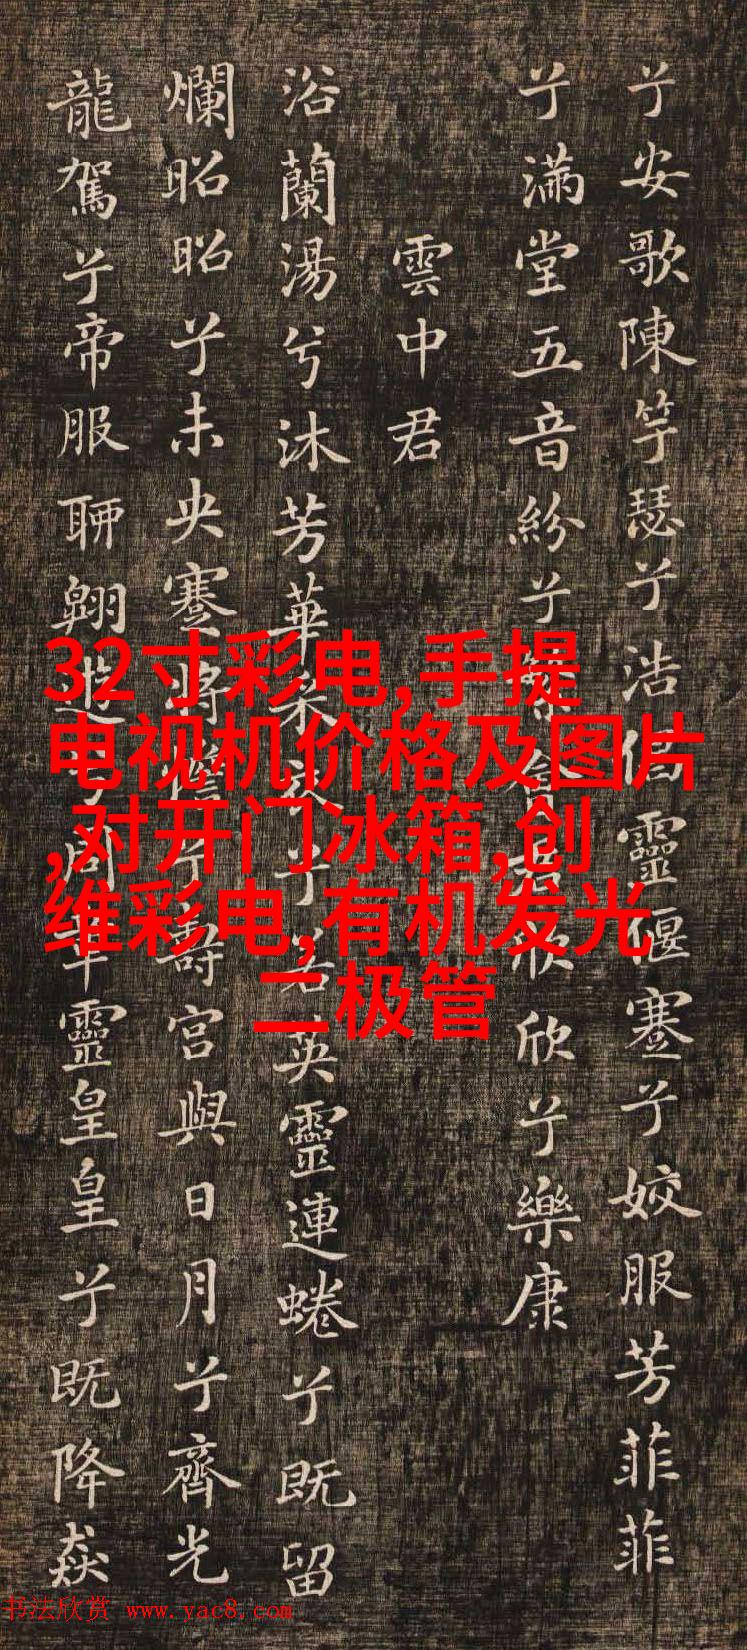 兮安歌陳竽瑟兮浩倡靈偃蹇兮姣服芳菲菲
兮滿堂五音紛兮繁會君欣欣兮樂康
雲中君
浴蘭湯兮沐芳華采衣兮若英靈連蜷兮既留
爛昭昭兮未央蹇將憺兮壽宮與日月兮齊光
龍駕兮帝服聊翱遊兮周章靈皇皇兮既降猋
32寸彩电,手提
电视机价格及图片
,对开门冰箱,创
维彩电,有机发光
二极管
书法欣赏 www.yac8.com